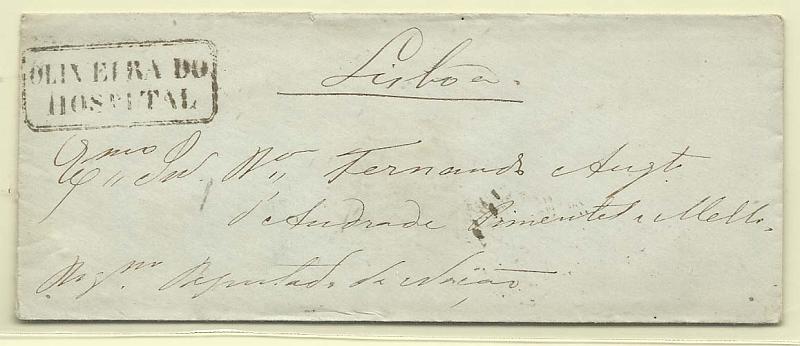 OLIVEIRA DO
HOSPITAL
Lisboa.
Exmo Snr. Fernando Augto
d'Andrade Pimentel e Mello.
Mgmo Deputado da Nação